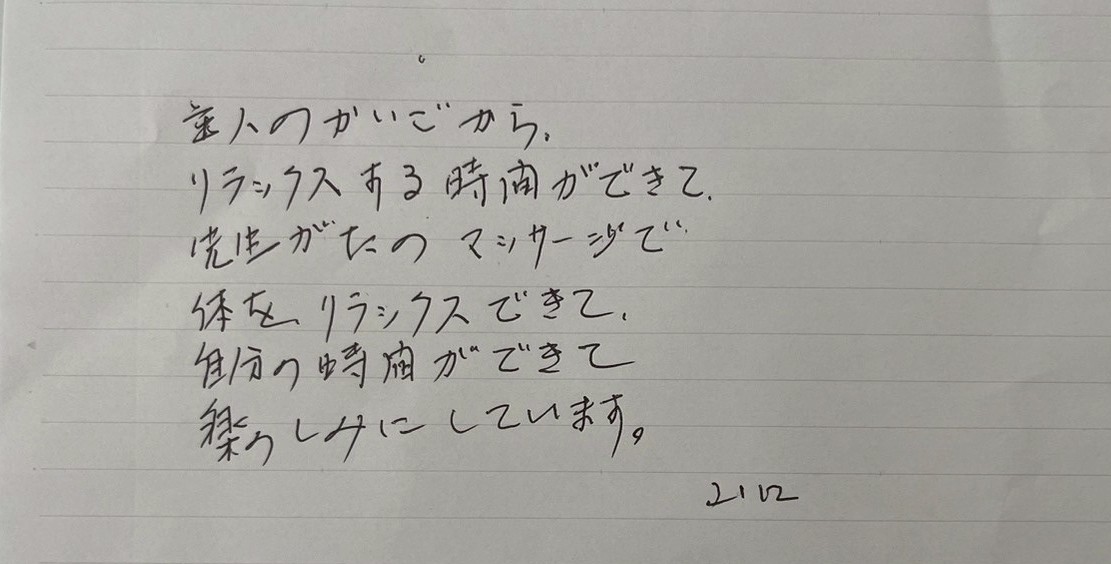 主人のかいごから、
リラックスする時間ができて、
先生がたのマッサージで
体を、リラックスできて、
自分の時間ができて
楽のしみにしています。